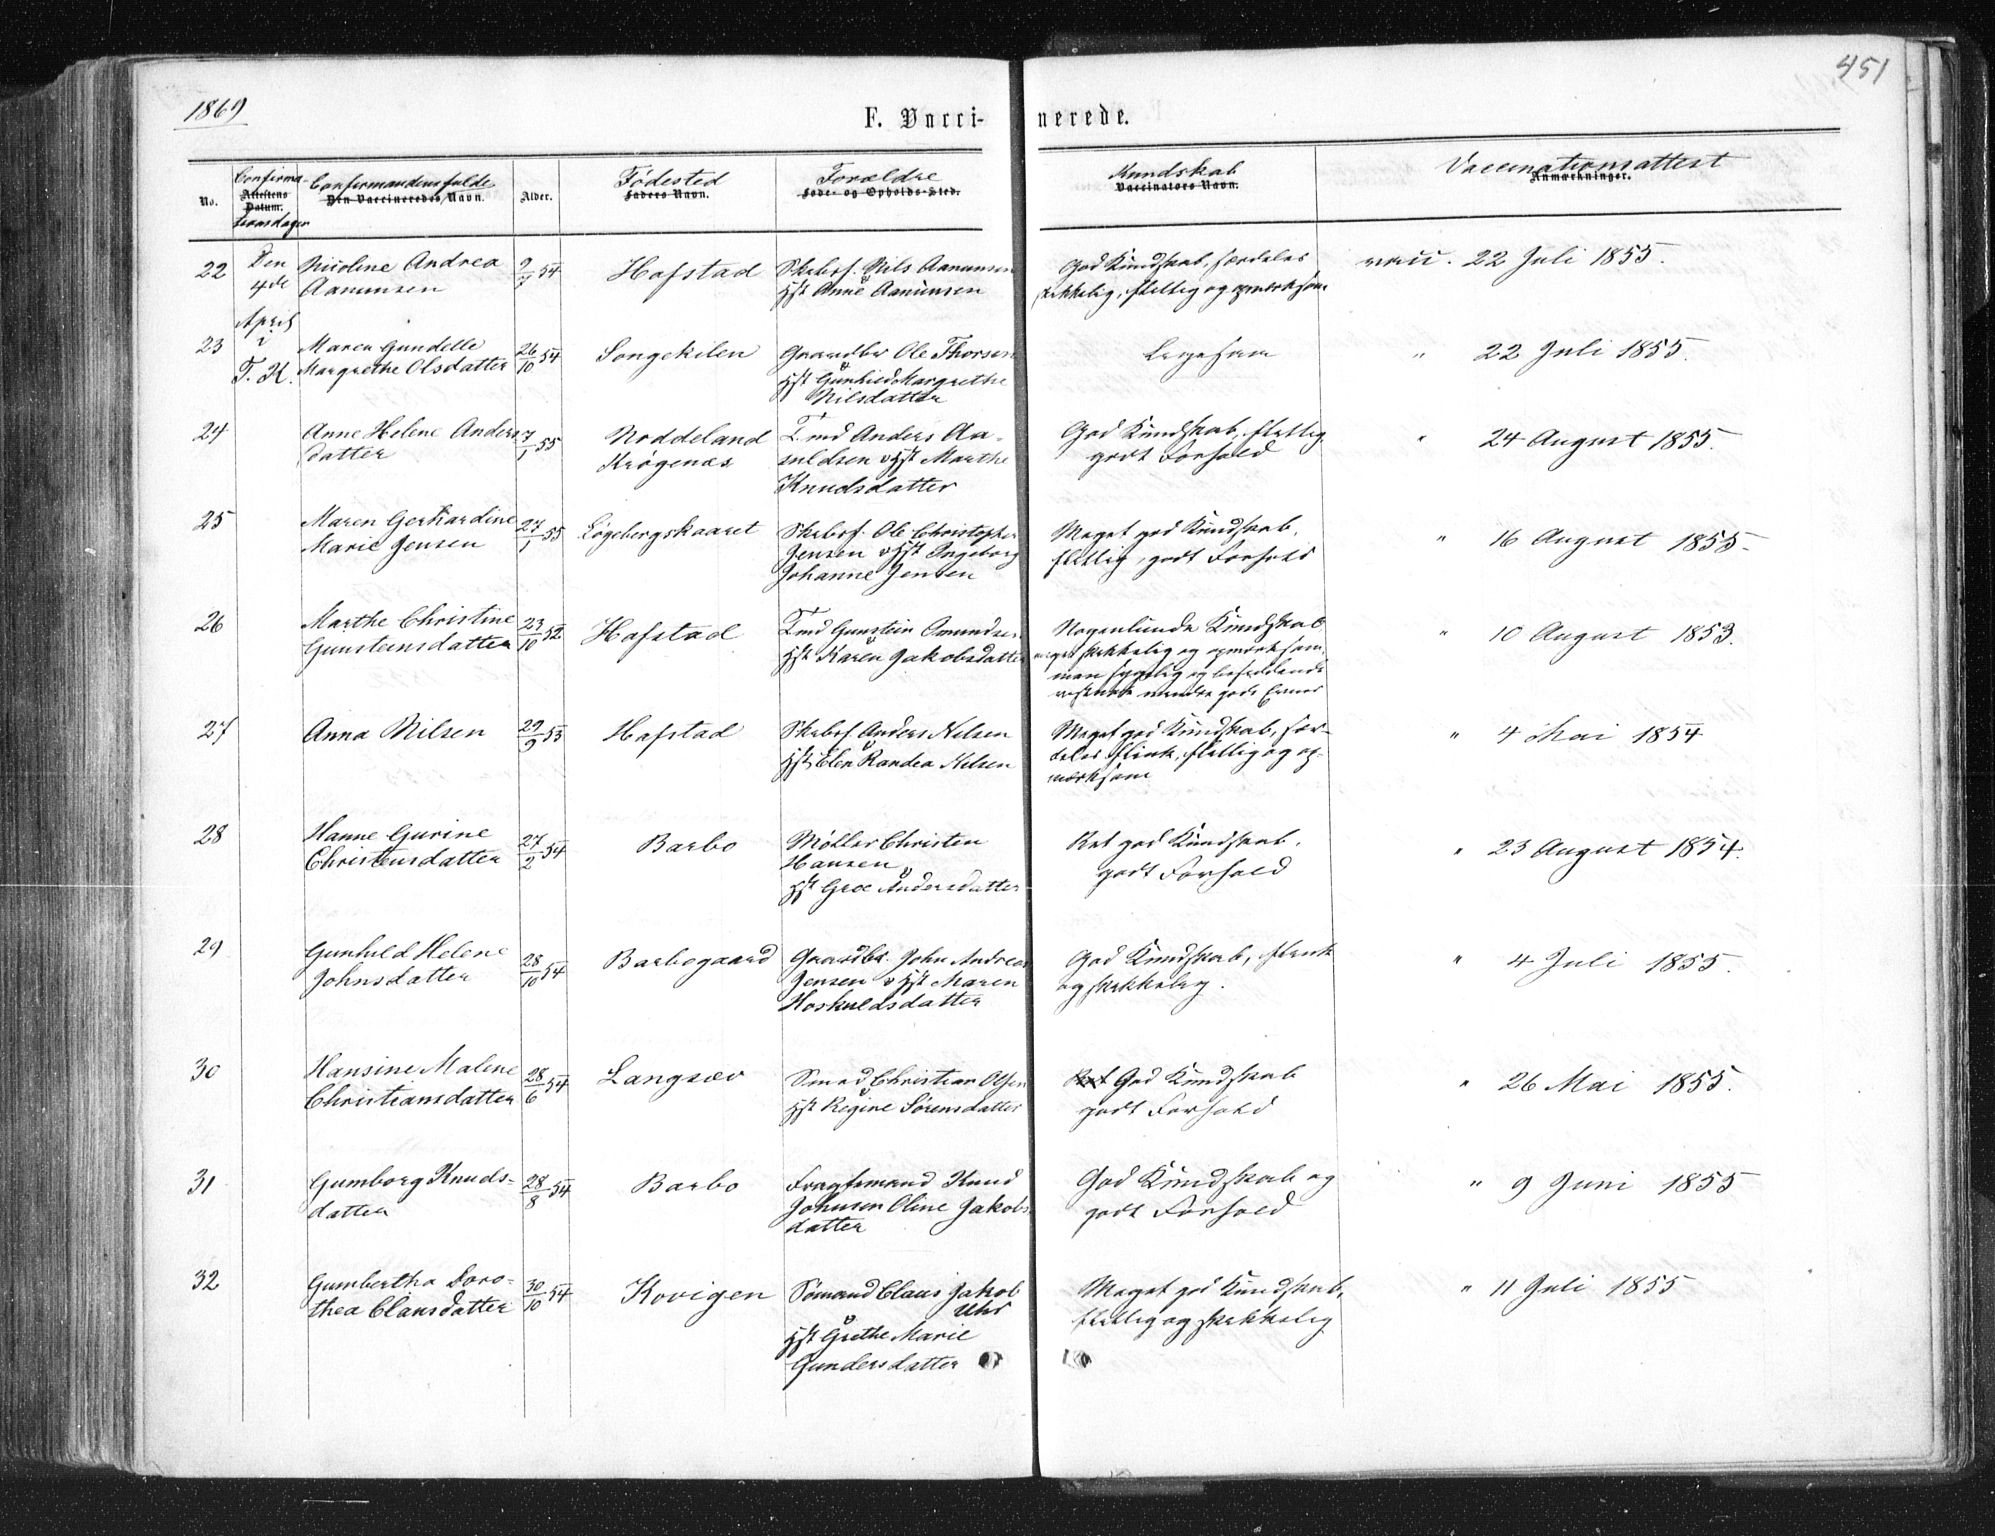 451
1869
F. Vacci-nerede.
No.
Confirma-
Attestens
Datum.
tionsdagen
Confirmandens fulde
Den Vaccineredes Navn.
Alder.
Fødested
Faders Navn.
Forældre
Føde- og Opholds-Sted.
Kundskab
Vaccinators Navn.
Vaccinationsattest
Anmærkninger.
22 Den 4de April i T. K.
Nicoline Andrea
Aanunsen
9/7 54
Hafstad
Skibsf. Nils Aanunsen
Hst Anne Aanunsen
God Kundskab, særdeles
skikkelig, flittig og opmærksom
vacc. 22 Juli 1855.
23
Maren Gundelle
Margrethe Olsdatter
26/10 54
Songekilen
Gaardbr Ole Thorsen
Hst Gunhild Margrethe
Nilsdatter
Ligesom
" 22 Juli 1855.
24
Anne Helene Anders
datter
7/1 55
Noddeland
Krøgenæs
Tmd Anders Aa-
suldsen o Hst Marthe
Knudsdatter
God Kundskab, flittig
godt Forhold
" 24 August 1855.
25
Maren Gerhardine
Marie Jensen
27/1 55
Løgebergskaaret
Skibsf. Ole Christopher
Jensen o Hst Ingeborg
Johanne Jensen
Meget god Kundskab,
flittig, godt Forhold
" 16 August 1855.
26
Marthe Christine
Gunsteinsdatter
23/10 52
Hafstad
Tmd Gunstein Omundsen
Hst Karen Jakobsdatter
Nogenlunde Kundskab
meget skikkelig og opmærksom
men sygelig og befindende
mindre gode Evner
" 10 August 1853.
27
Anna Nilsen
29/9 53
Hafstad
Skibsf. Anders Nilsen
Hst Elen Randea Nilsen
Meget god Kundskab, sær-
deles flink, flittig og op-
mærksom
" 4 Mai 1854
28
Hanne Gurine
Christensdatter
27/2 54
Barbo
Møller Christen
Hansen
Hst Groe Andersdatter
Ret god Kundskab,
godt Forhold
" 23 August 1854.
29
Gunhild Helene
Johnsdatter
28/10 54
Barbogaard
Gaardbr. John Andreas
Jensen o Hst Maren
Hoskuldsdatter
God Kundskab, flink
og skikkelig.
" 4 Juli 1855.
30
Hansine Malene
Christiansdatter
28/6 54
Langsæv
Smed Christian Olsen
Hst Regine Sørensdatter
Ret God Kundskab
godt Forhold
" 26 Mai 1855.
31
Gumborg Knuds-
datter
28/8 54
Barbo
Fragtemand Knud
Johnsen Oline Jakobs
datter
God Kundskab og
godt Forhold
" 9 Juni 1855
32
Gumbertha Doro-
thea Clausdatter
30/10 54
Kovigen
Sømand Claus Jakob
Uhr
Hst Grethe Marie
Gundersdatter
Meget god Kundskab,
flittig og skikkelig
" 11 Juli 1855